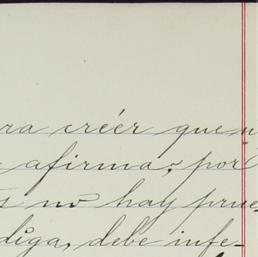 ra créér que n
afirma, por
s no hay prue
diga, debe infe-